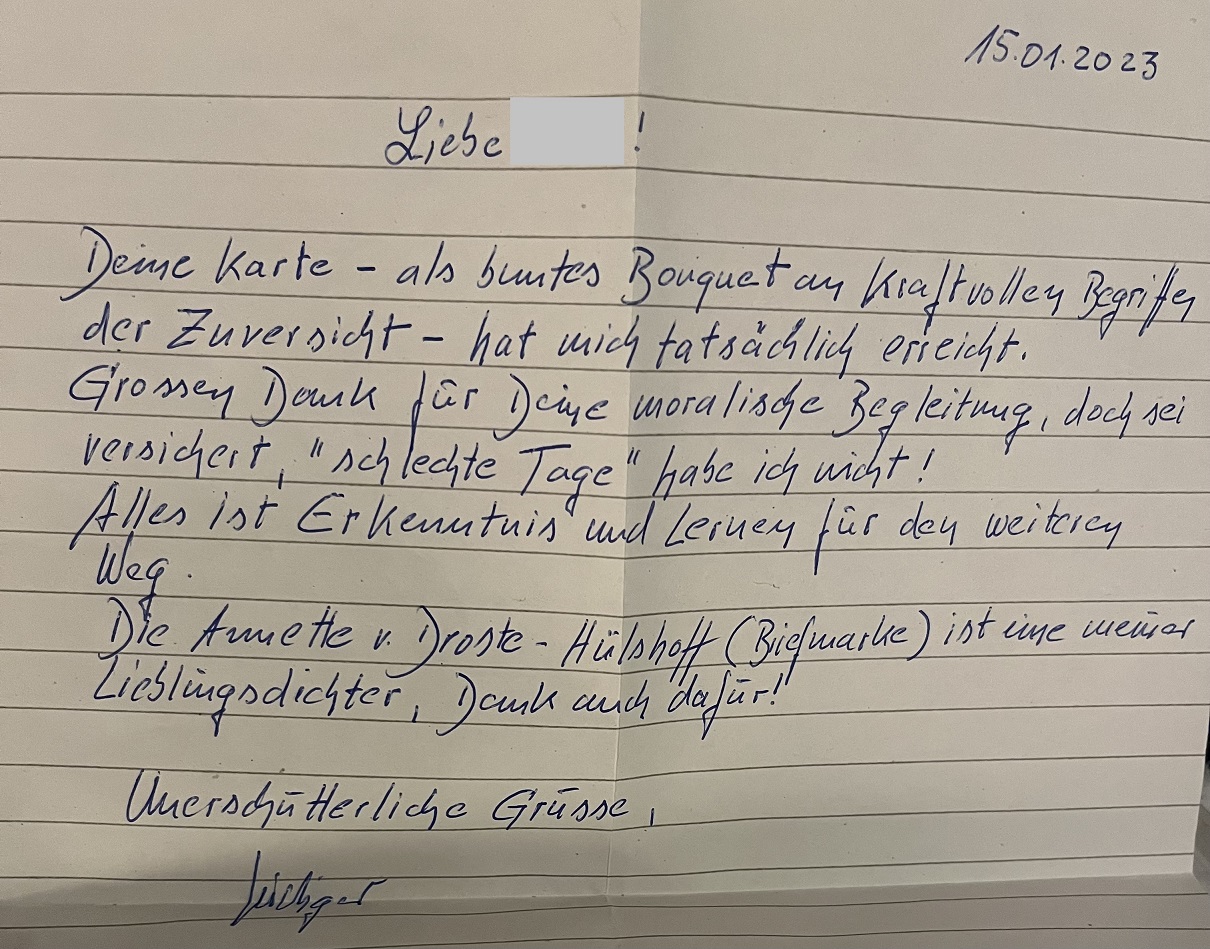 15.01.2023
Liebe !
Deine Karte – als buntes Bouquet an kraftvollen Begriffen
der Zuversicht – hat mich tatsächlich erreicht.
Grossen Dank für Deine moralische Begleitung, doch sei
versichert, "schlechte Tage" habe ich nicht!
Alles ist Erkenntnis und Lernen für den weiteren
Weg.
Die Annette v. Droste-Hülshoff (Briefmarke) ist eine meiner
Lieblingsdichter, Dank auch dafür!
Unerschütterliche Grüsse,